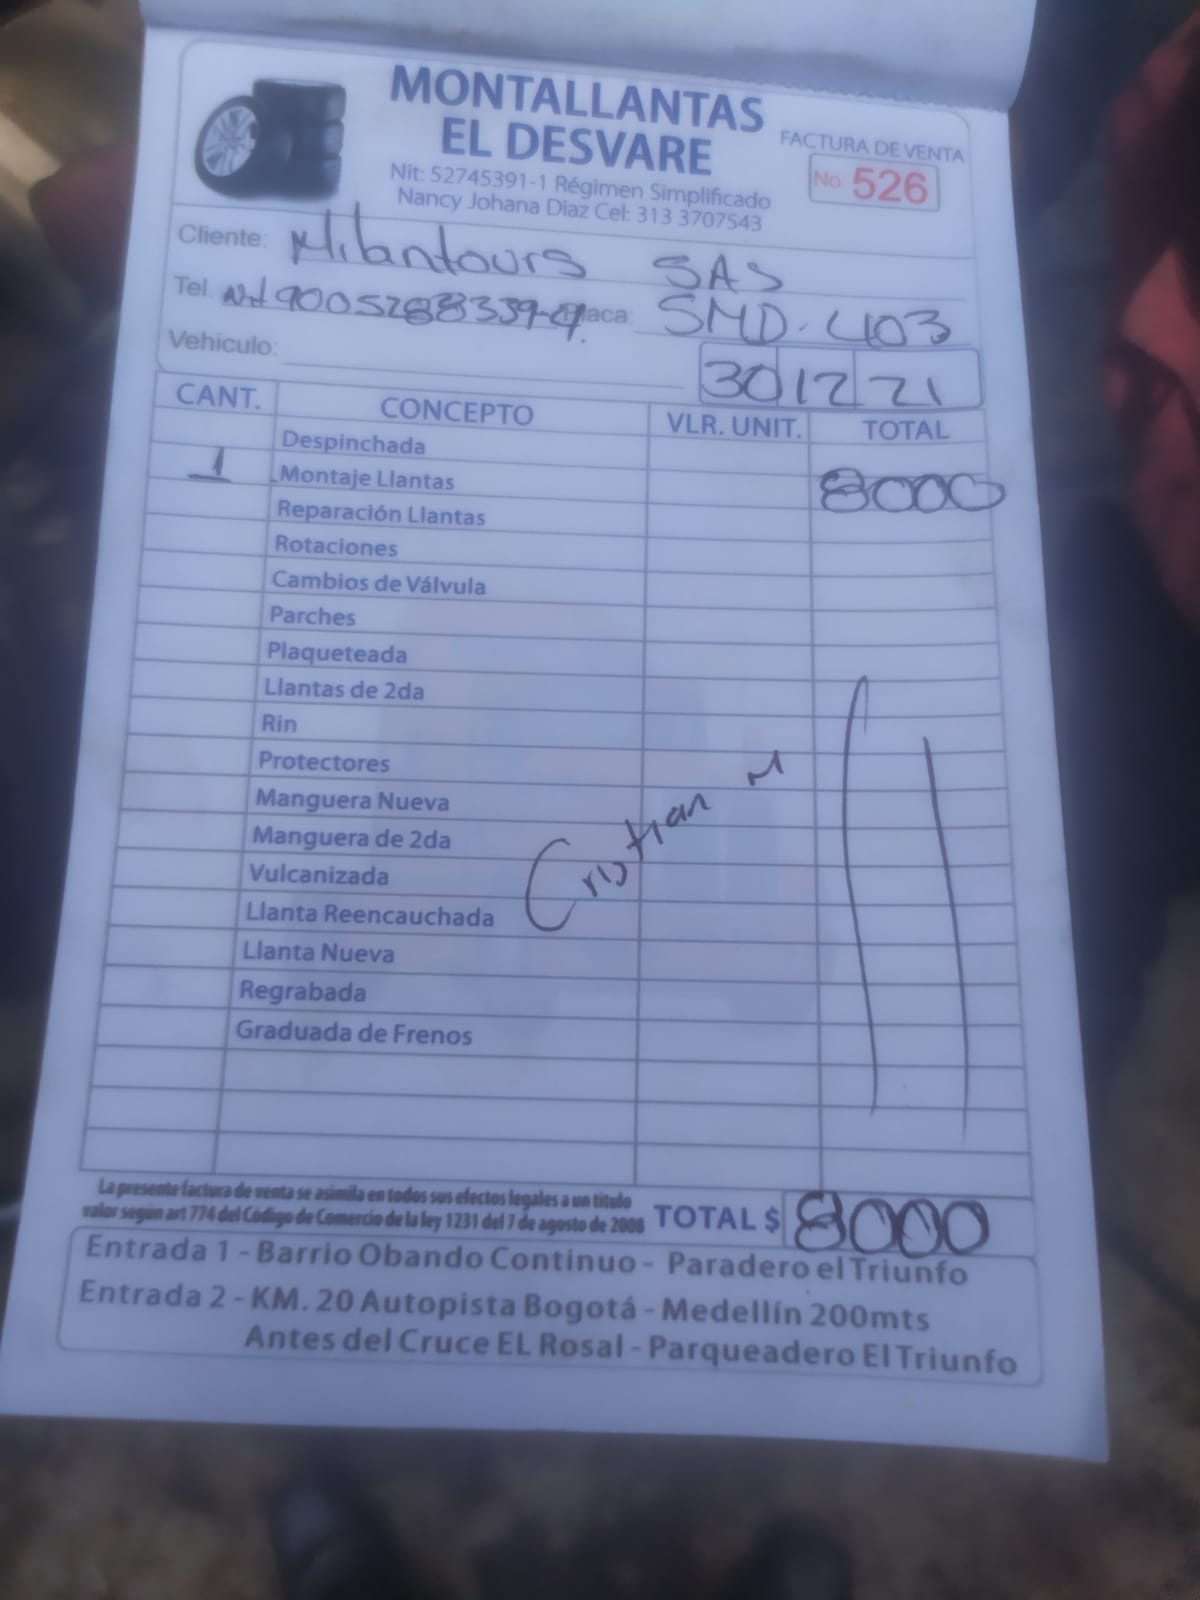 MONTALLANTAS
EL DESVARE
FACTURA DE VENTA
No. 526
Nit: 52745391-1 Régimen Simplificado
Nancy Johana Diaz Cel: 313 3707543
Cliente: Milantours SAS
Tel. Nit 9005288339-4. Placa: SMD-403
Vehiculo:
30 12 21
CANT. CONCEPTO VLR. UNIT. TOTAL
Despinchada
1 Montaje Llantas 8000
Reparación Llantas
Rotaciones
Cambios de Válvula
Parches
Plaqueteada
Llantas de 2da
Rin
Protectores
Manguera Nueva
Manguera de 2da
Vulcanizada
Llanta Reencauchada
Llanta Nueva
Regrabada
Graduada de Frenos
Cristian M
La presente factura de venta se asimila en todos sus efectos legales a un titulo
valor según art 774 del Código de Comercio de la ley 1231 del 7 de agosto de 2008
TOTAL $ 8000
Entrada 1 - Barrio Obando Continuo - Paradero el Triunfo
Entrada 2 - KM. 20 Autopista Bogotá - Medellín 200mts
Antes del Cruce EL Rosal - Parqueadero El Triunfo